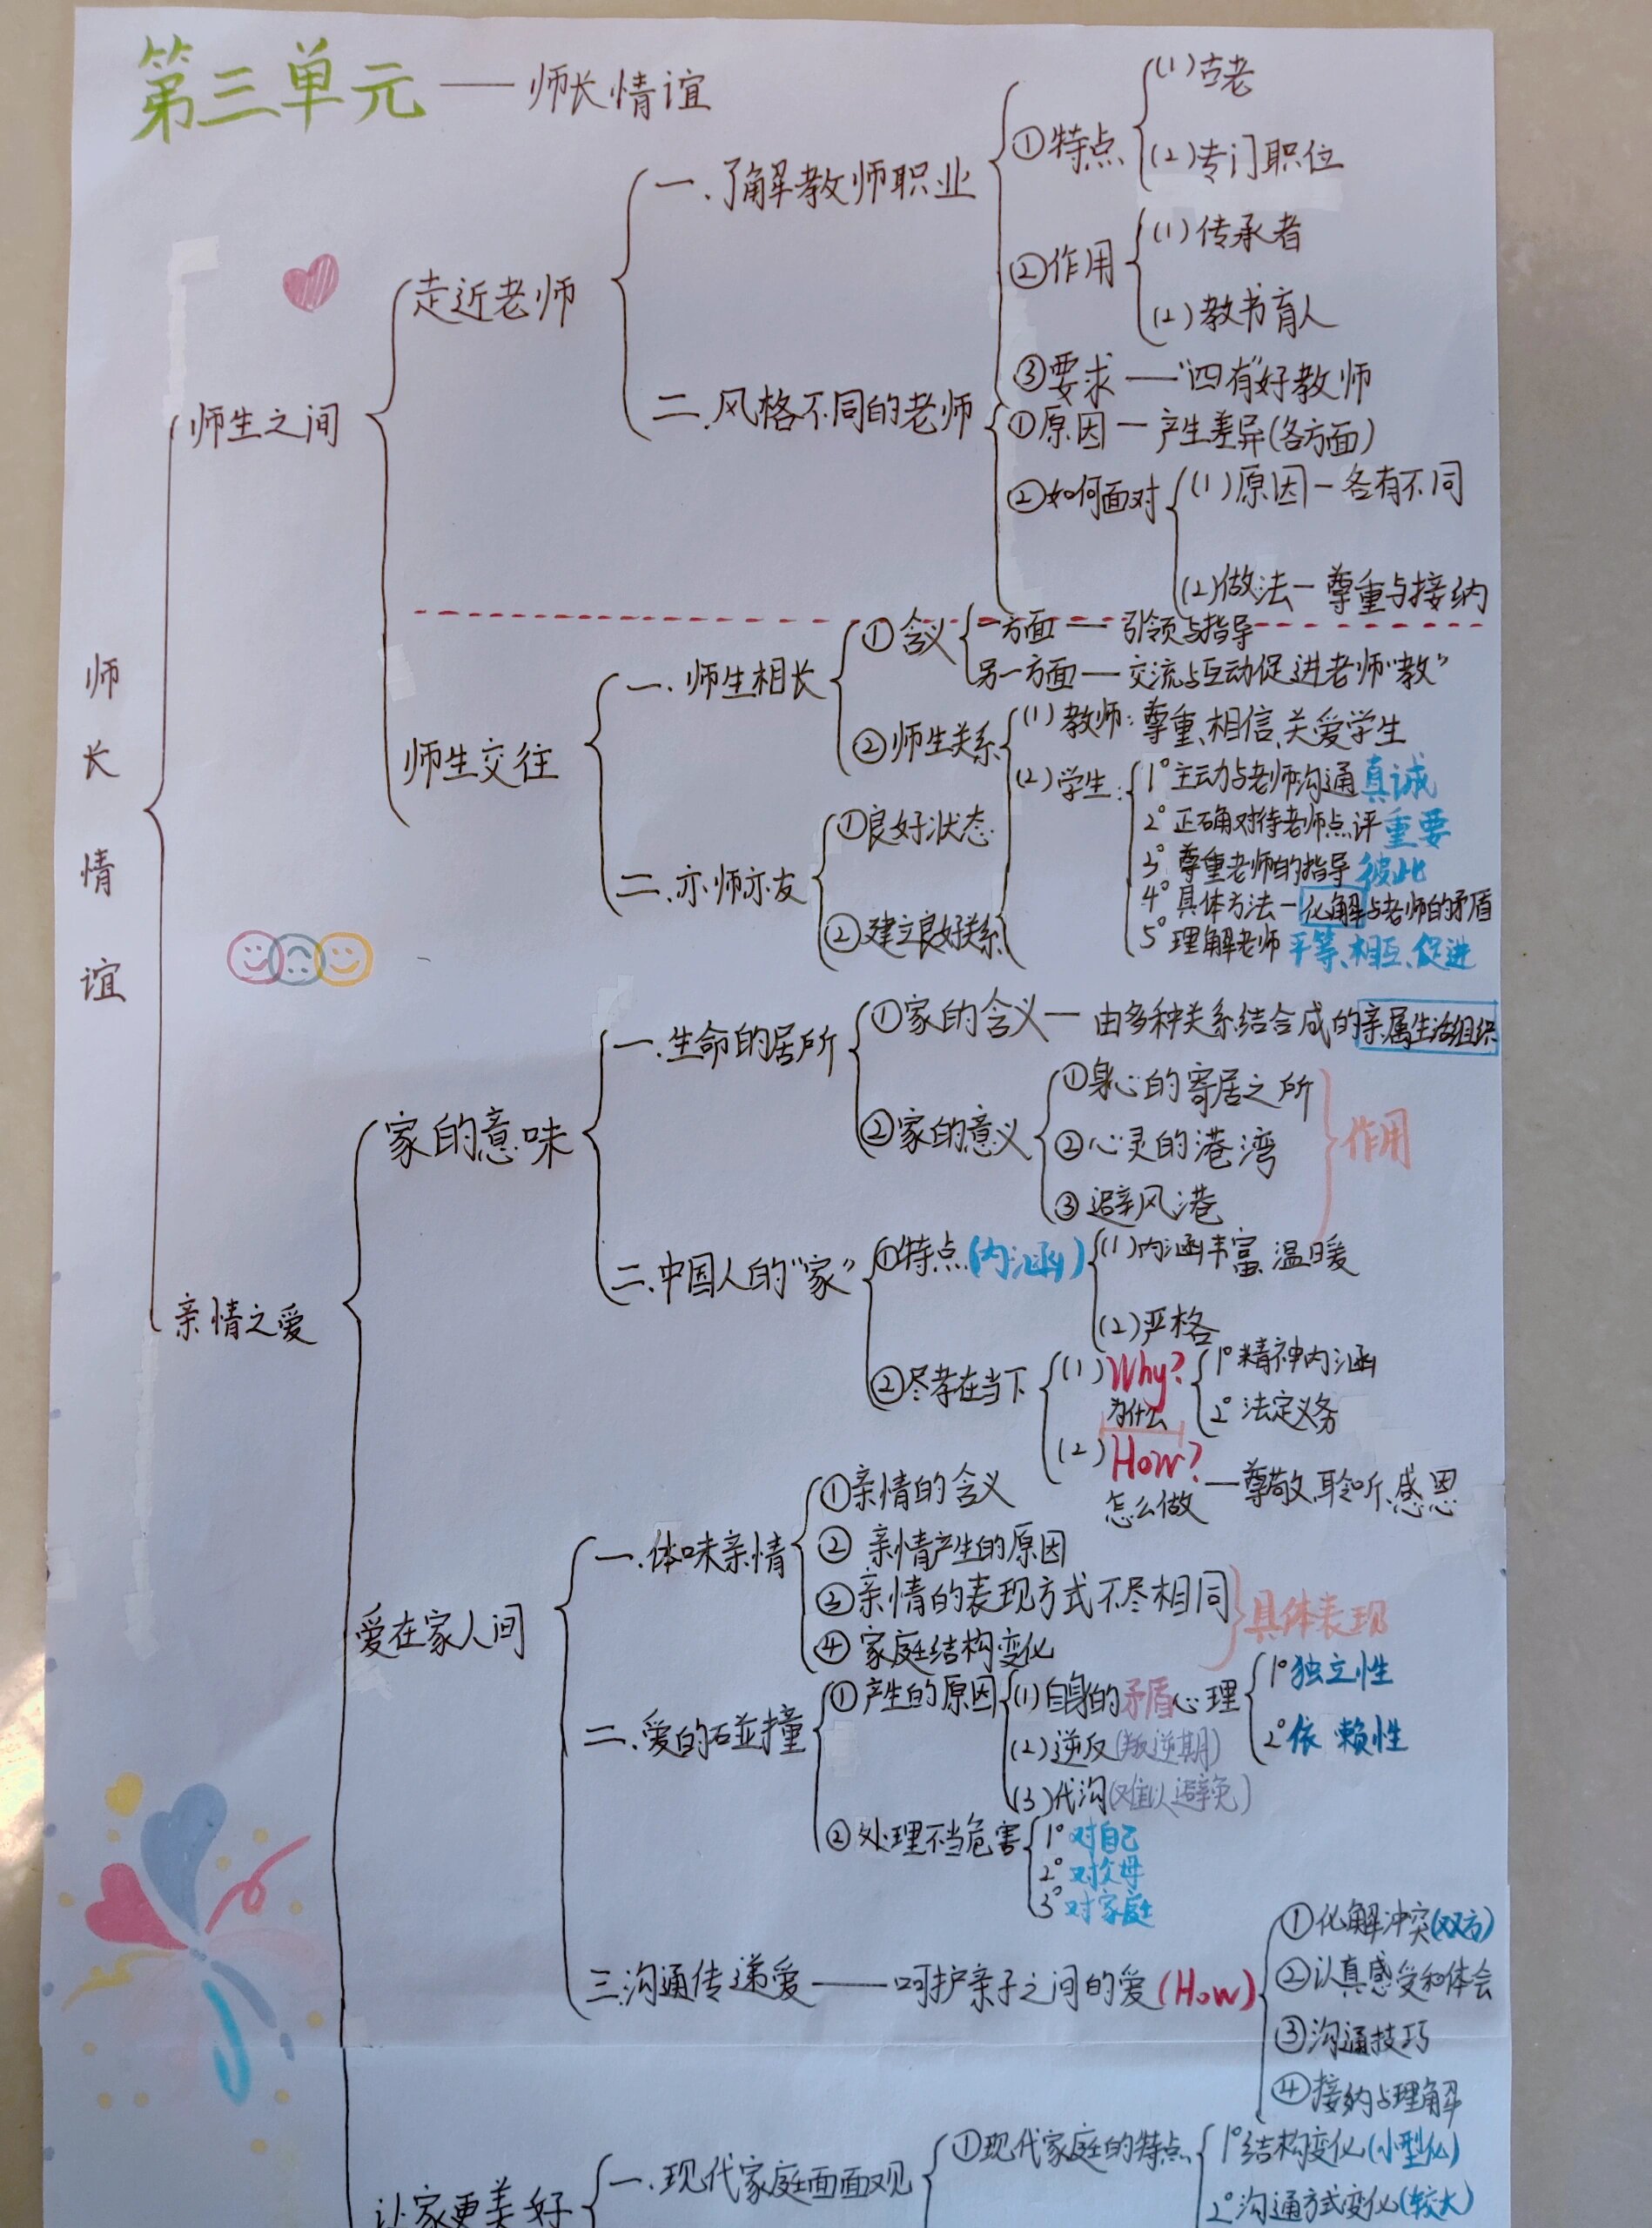 第三单元——师长情谊
师长情谊
师生之间
走近老师
一.了解教师职业
①特点
(1)古老
(2)专门职位
②作用
(1)传承者
(2)教书育人
③要求——“四有”好教师
二.风格不同的老师
①原因—产生差异(各方面)
②如何面对
(1)原因—各有不同
(2)做法—尊重与接纳
师生交往
一.师生相长
①含义
一方面——引领与指导
另一方面——交流与互动促进老师“教”
②师生关系
(1)教师:尊重、相信、关爱学生
(2)学生:
1°主动与老师沟通 真诚
2°正确对待老师点评 重要
3°尊重老师的指导 彼此
4°具体方法—化解与老师的矛盾
5°理解老师 平等、相互、促进
二.亦师亦友
①良好状态
②建立良好关系
亲情之爱
家的意味
一.生命的居所
①家的含义—由多种关系结合成的亲属生活组织
②家的意义
①身心的寄居之所
②心灵的港湾
③避风港
作用
二.中国人的“家”
①特点(内涵)
(1)内涵丰富、温暖
(2)严格
②尽孝在当下
(1)Why?
为什么
1°精神内涵
2°法定义务
(2)How?
怎么做
—尊敬、聆听、感恩
爱在家人间
一.体味亲情
①亲情的含义
②亲情产生的原因
③亲情的表现方式不尽相同
④家庭结构变化
具体表现
二.爱的碰撞
①产生的原因
(1)自身的矛盾心理
1°独立性
2°依赖性
(2)逆反(叛逆期)
(3)代沟(难以避免)
②处理不当危害
1°对自己
2°对父母
3°对家庭
三.沟通传递爱——呵护亲子之间的爱(How)
①化解冲突(双方)
②认真感受和体会
③沟通技巧
④接纳与理解
让家更美好
一.现代家庭面面观
①现代家庭的特点
1°结构变化(小型化)
2°沟通方式变化(较大)